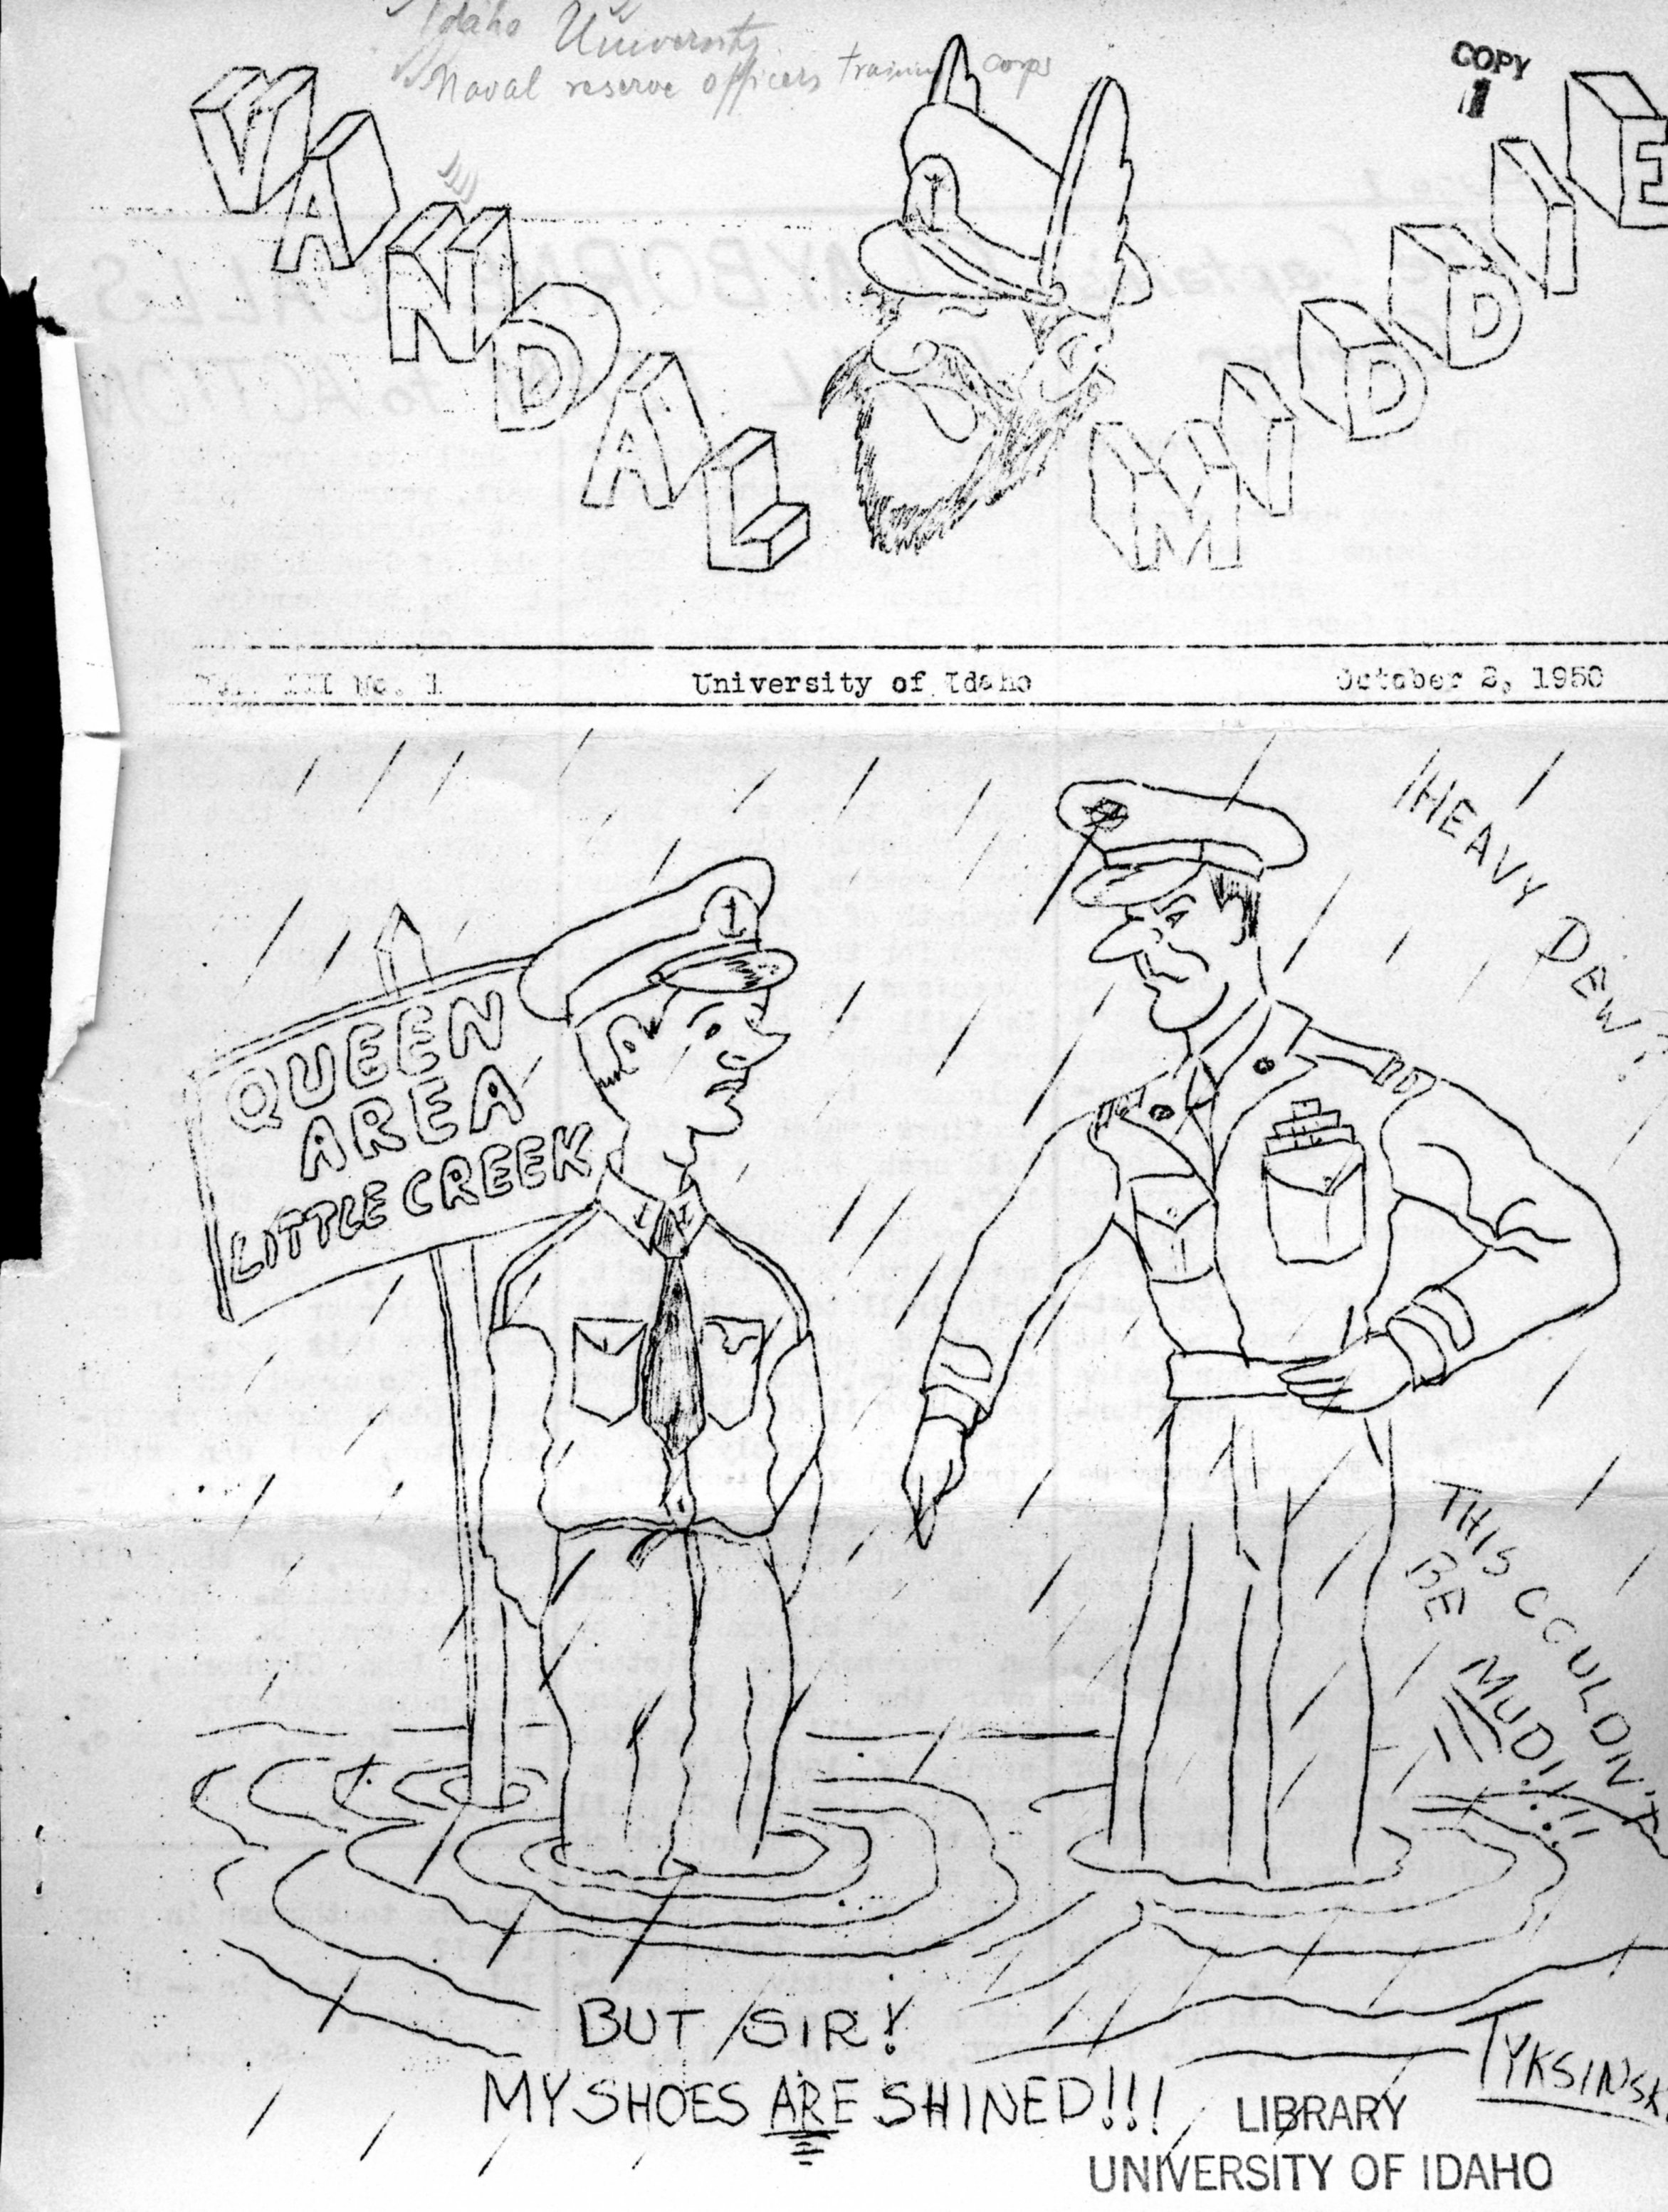 Idaho University
Naval reserve officers training corps
COPY
1
VANDAL MIDDIE
Vol. III No. 1 University of Idaho October 2, 1950
HEAVY DEW?
QUEEN
AREA
LITTLE CREEK
THIS COULDN'T
BE MUD!!!
BUT SIR!
MY SHOES ARE SHINED!!!
TYKSINSK
LIBRARY
UNIVERSITY OF IDAHO